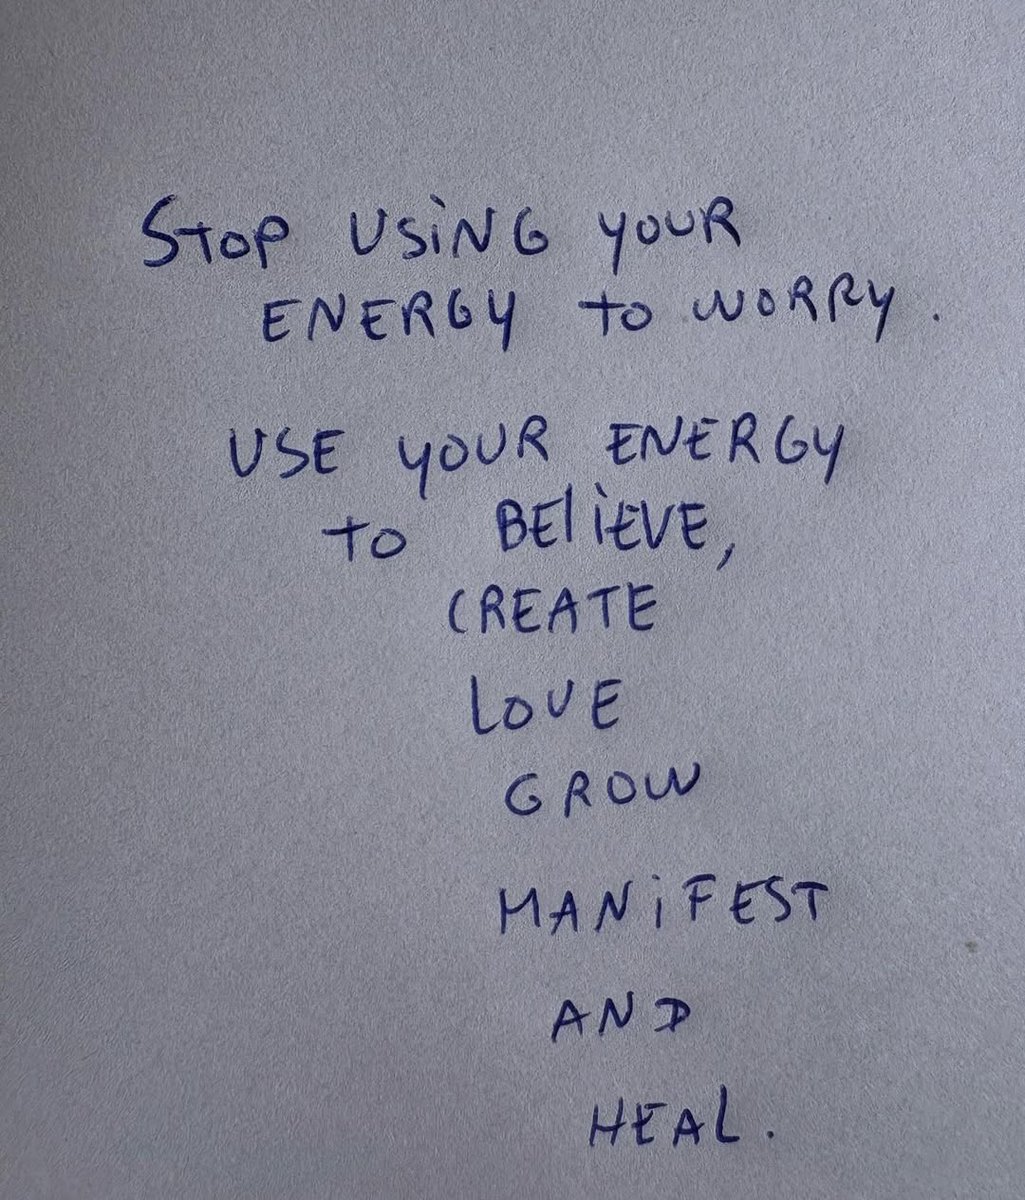 STOP USING YOUR
ENERGY TO WORRY.
USE YOUR ENERGY
TO BELIEVE,
CREATE
LOVE
GROW
MANIFEST
AND
HEAL.